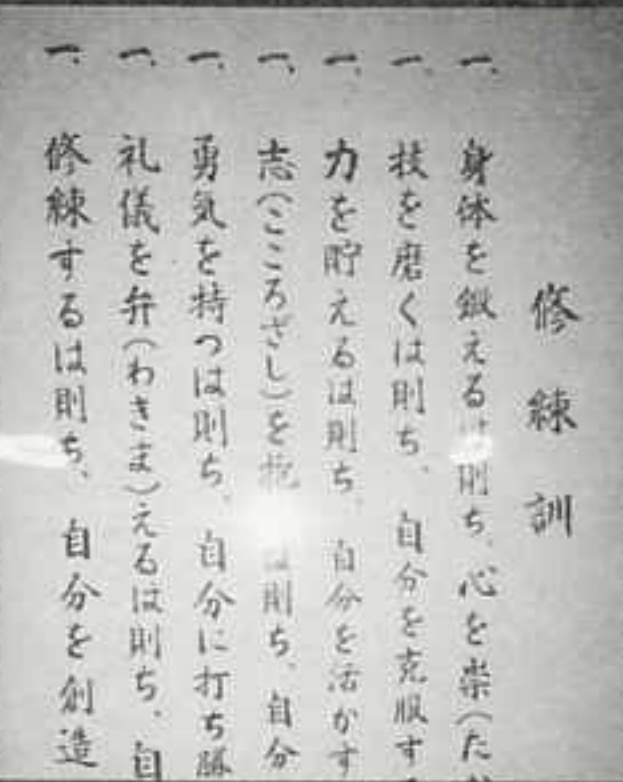 修練訓
一、身体を鍛える は則ち、心を崇(た
一、技を磨くは則ち、自分を克服す
一、力を貯えるは則ち、自分を活かす
一、志(こころざし)を抱 は則ち、自分
一、勇気を持つは則ち、自分に打ち勝
一、礼儀を弁(わきま)えるは則ち、自
一、修練するは則ち、自分を創造